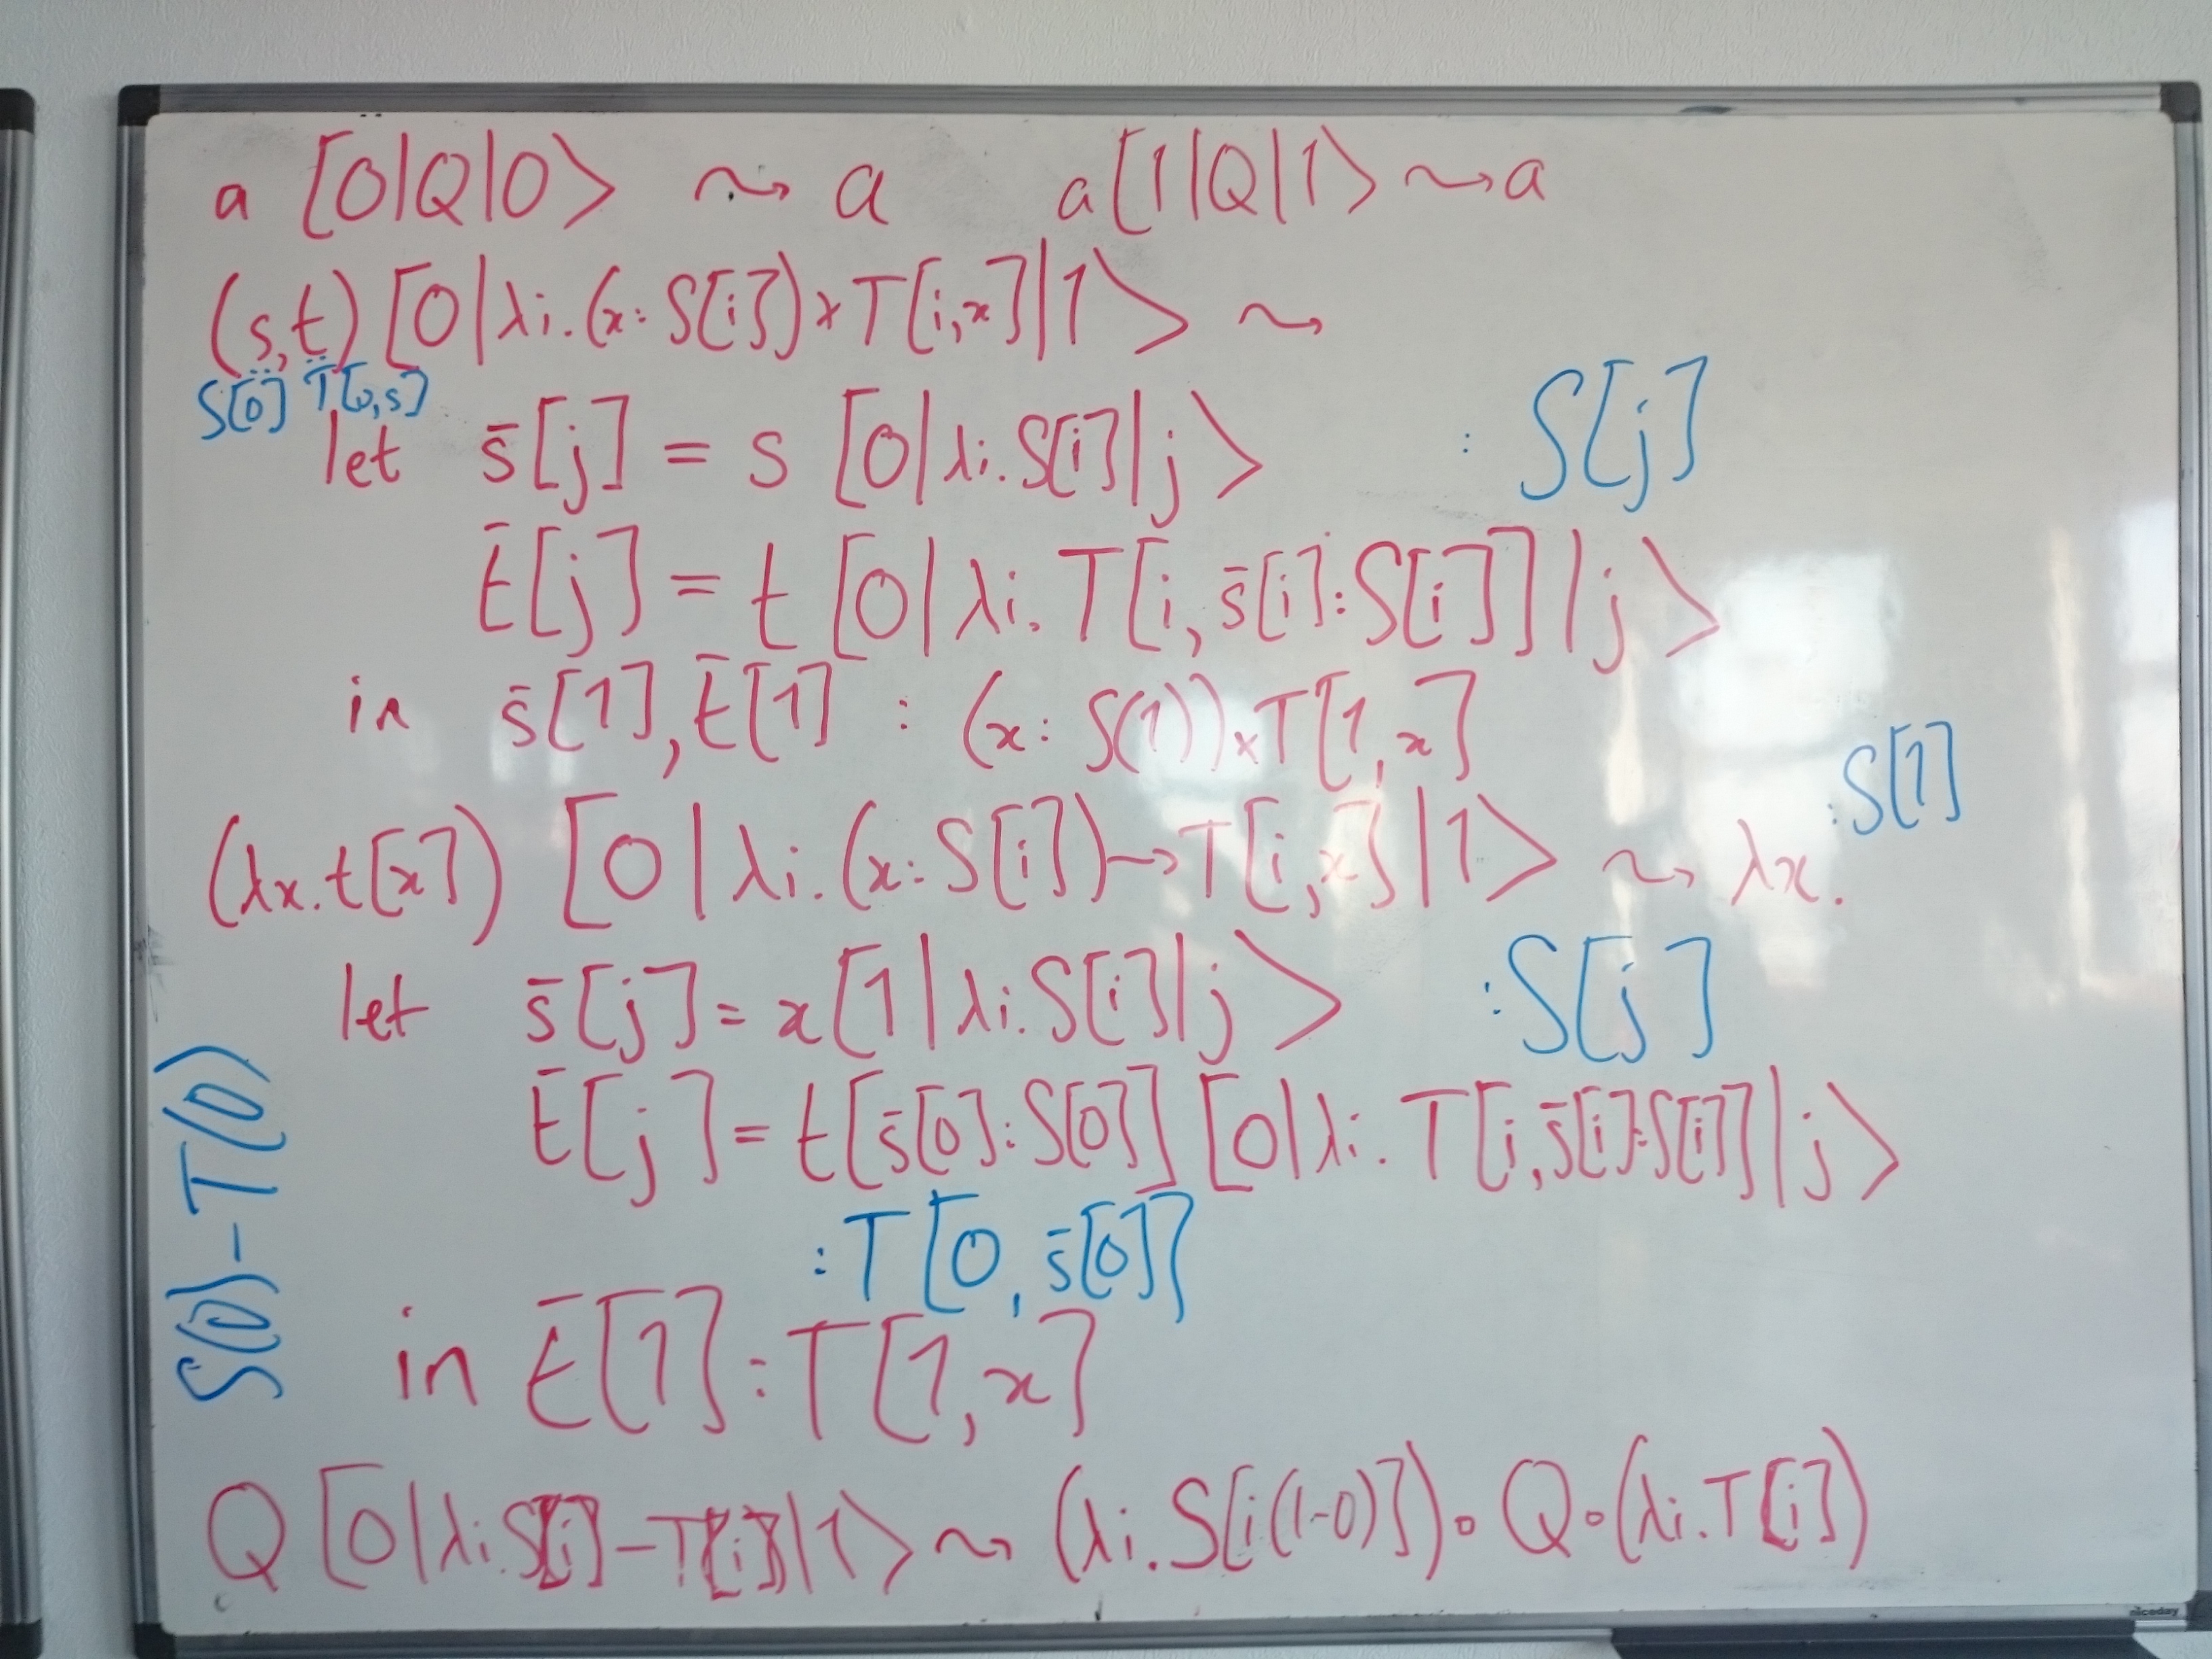 a [0|Q|0> ⤳ a a[1|Q|1> ⤳ a
(s,t) [0|λi.(x:S[i])×T[i,x]|1> ⤳
S[0] T[0,s]
let s̄[j] = s [0|λi.S[i]|j> : S[j]
t̄[j] = t [0|λi.T[i,s̄[i]:S[i]]|j>
in s̄[1],t̄[1] : (x:S(1))×T[1,x]
:S[1]
(λx.t[x]) [0|λi.(x:S[i])→T[i,x]|1> ⤳ λx.
let s̄[j] = x[1|λi.S[i]|j> :S[j]
t̄[j] = t[s̄[0]:S[0]] [0|λi.T[i,s̄[i]:S[i]]|j>
:T[0,s̄[0]]
S(0)-T(0)
in t̄[1]:T[1,x]
Q [0|λi.S[i]-T[i]|1> ⤳ (λi.S[i(1-0)])∘Q∘(λi.T[i])
niceday